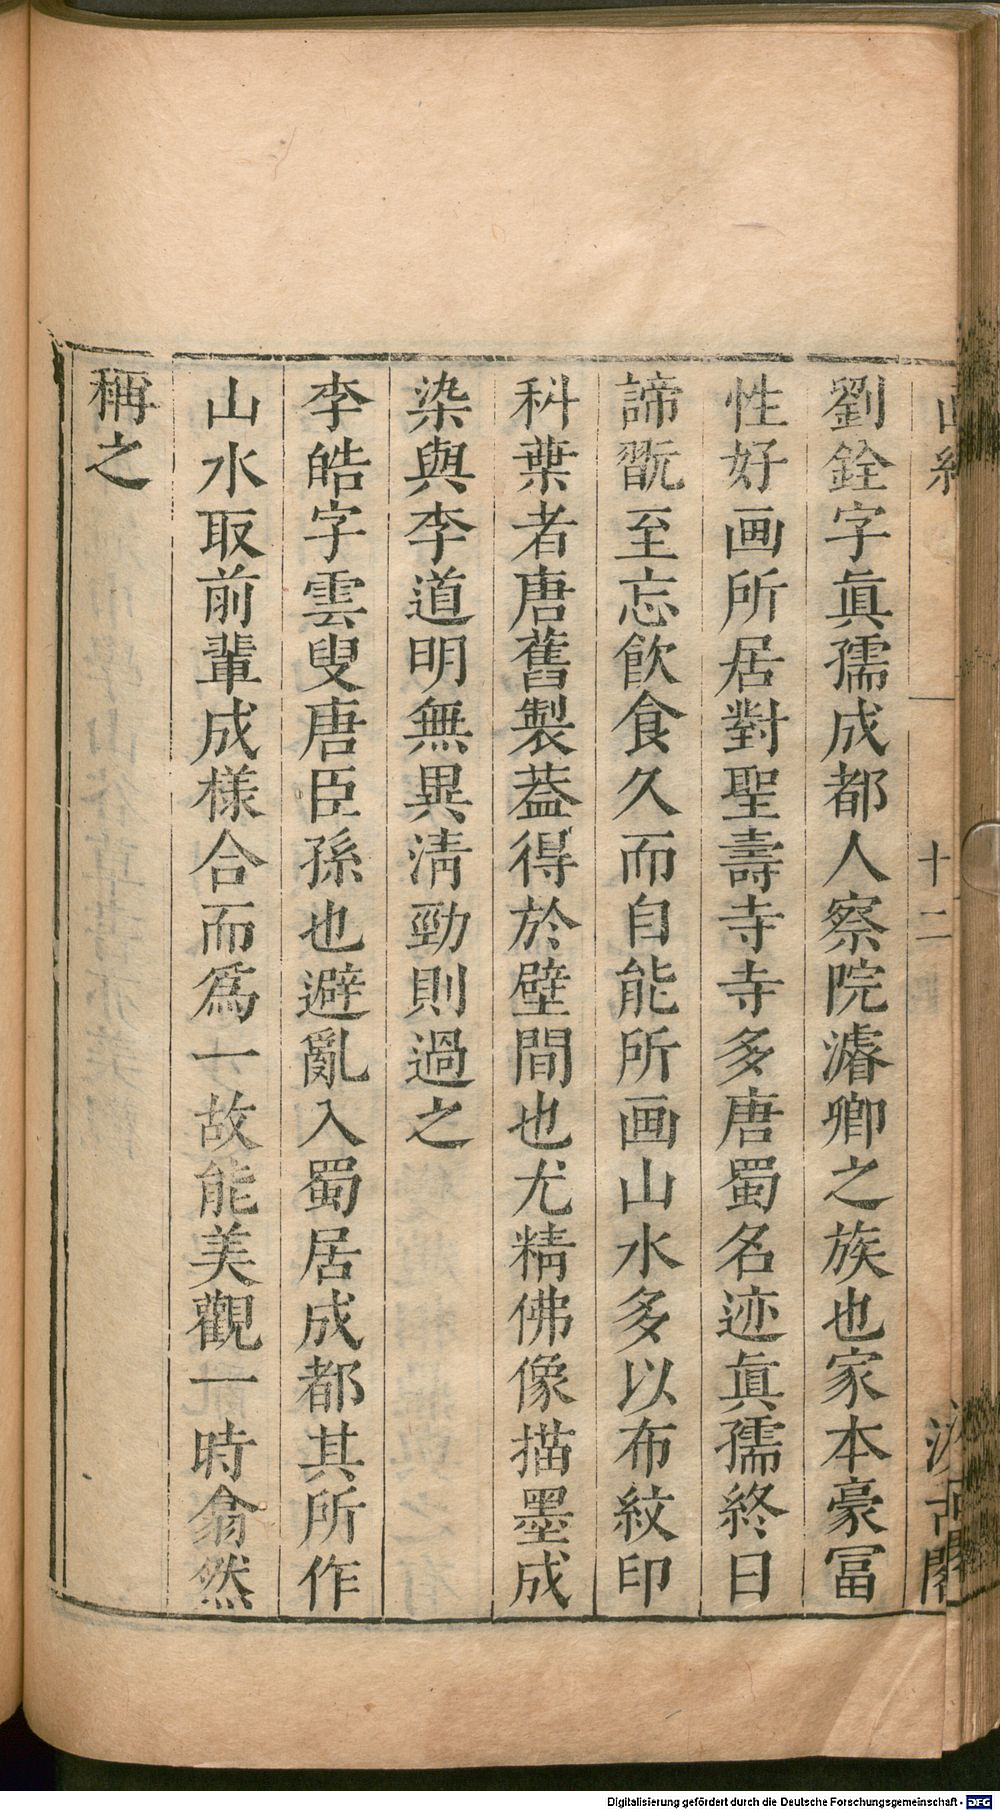 劉銓字眞孺成都人察院濬卿之族也家本豪冨
性好画所居對聖壽寺寺多唐蜀名迹眞孺終日
諦翫至忘飲食久而自能所画山水多以布紋印
科葉者唐舊製葢得於壁間也尤精佛像描墨成
染與李道明無異淸勁則過之
李皓字雲叟唐臣孫也避亂入蜀居成都其所作
山水取前輩成様合而爲一故能美觀一時翕然
稱之
十二
Digitalisierung gefördert durch die Deutsche Forschungsgemeinschaft - DFG